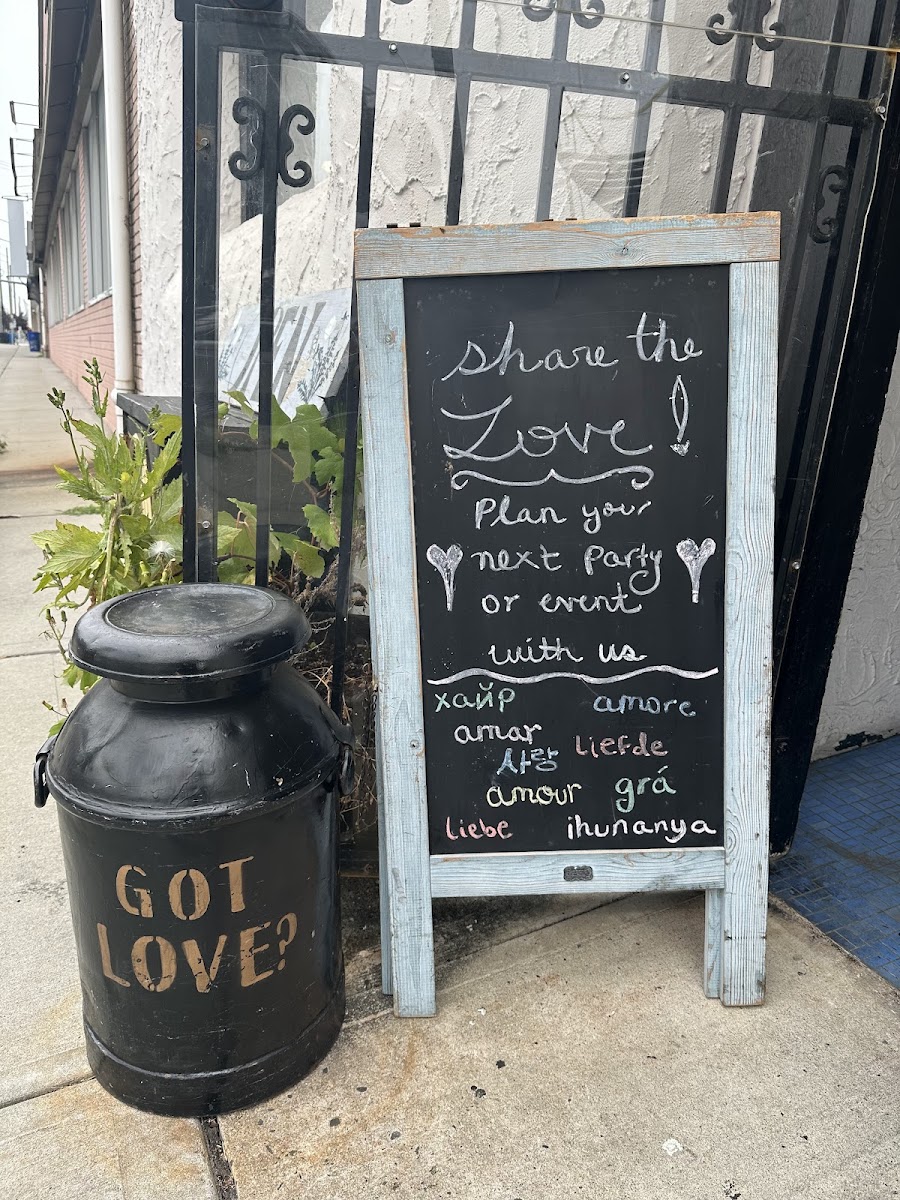 Share the
Love!
Plan your
next Party
or event
with us
хайр amore
amar
사랑 liefde
amour grá
liebe ihunanya
GOT
LOVE?